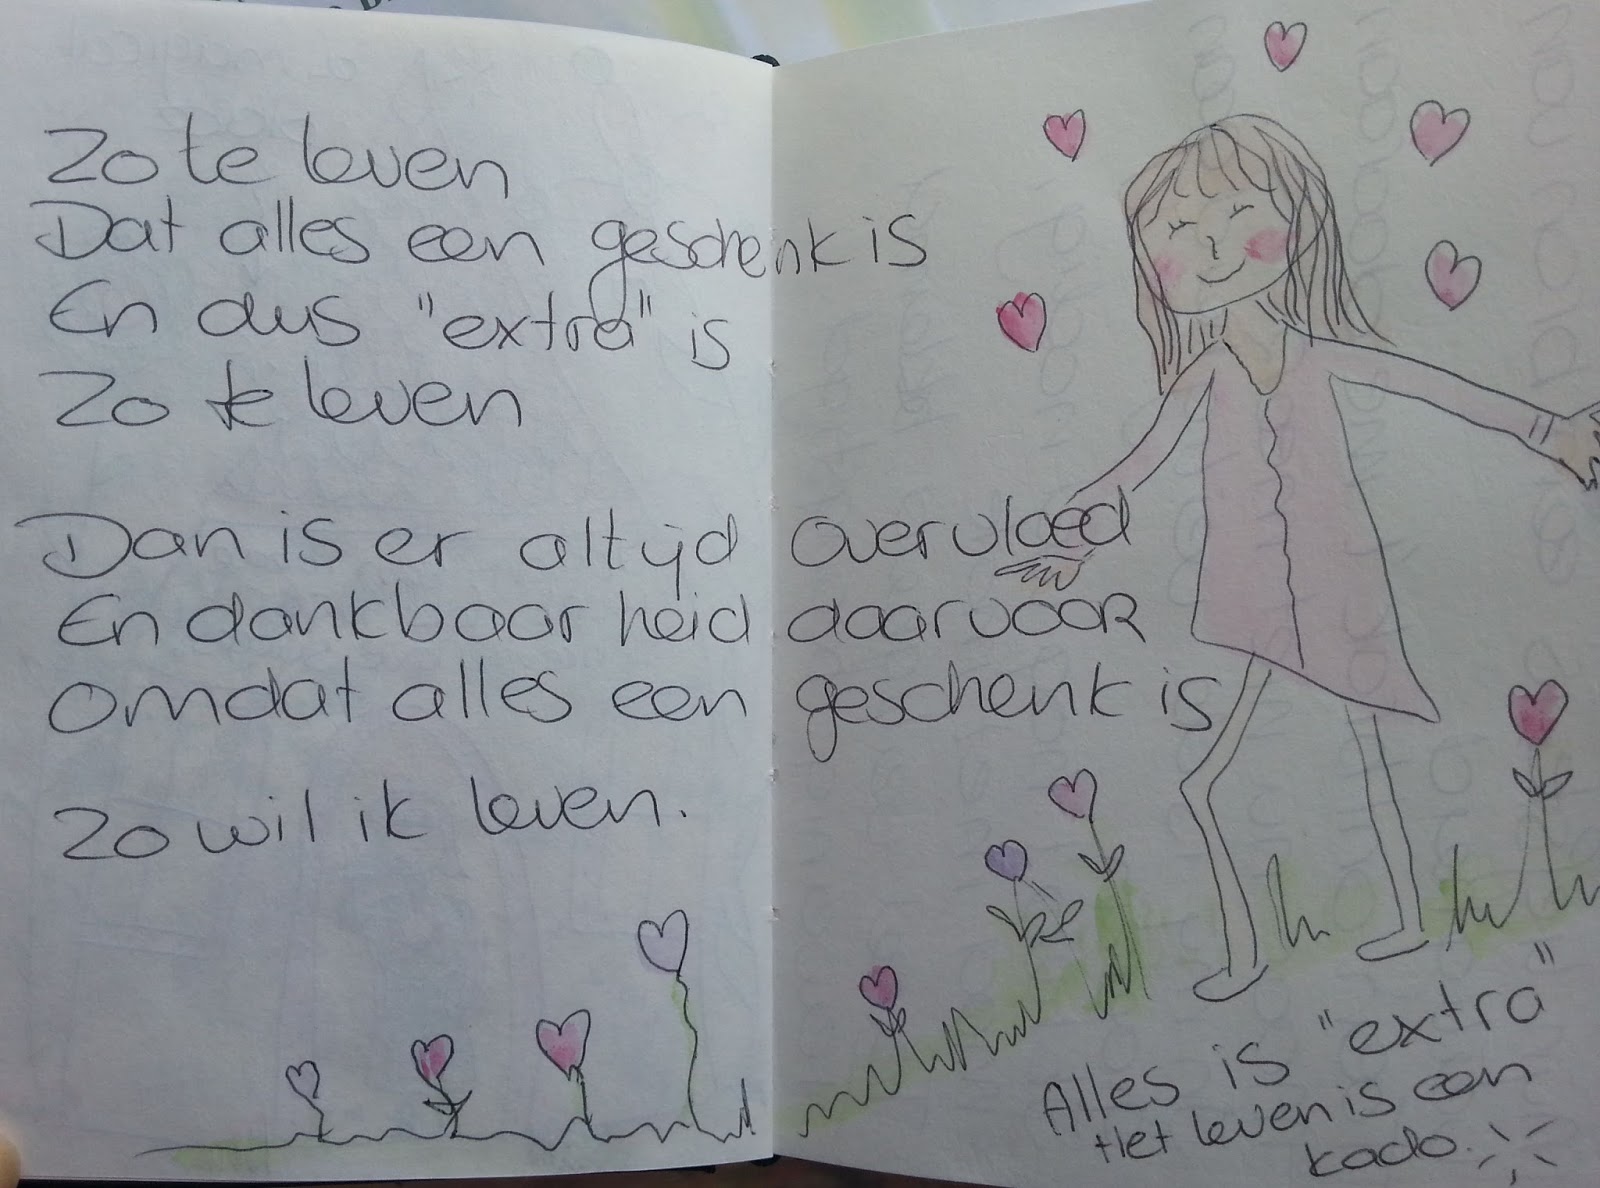 Zo te leven
Dat alles een geschenk is
En dus "extra" is
Zo te leven
Dan is er altijd overvloed
En dankbaarheid daarvoor
omdat alles een geschenk is
Zo wil ik leven.
Alles is "extra"
Het leven is een
kado.